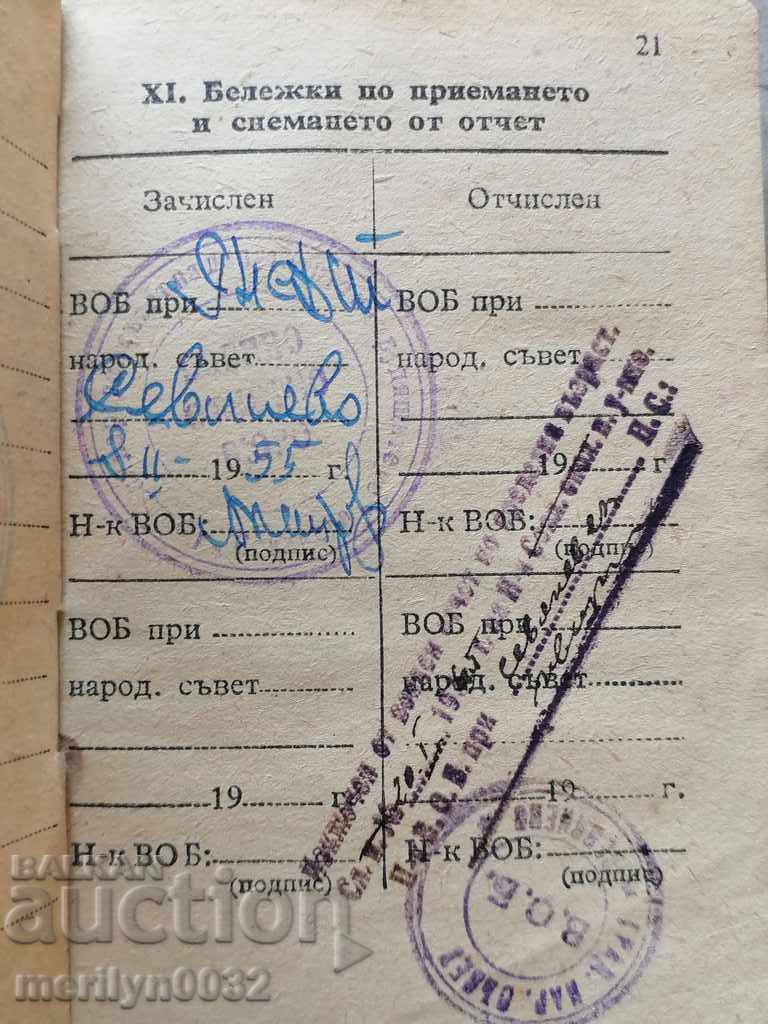 21
XI. Бележки по приемането
и снемането от отчет
Зачислен
Отчислен
ВОБ при
народ. съвет
Севлиево
8 II - 1955 г.
Н-к ВОБ:
(подпис)
ВОБ при
народ. съвет
19 г.
Н-к ВОБ:
(подпис)
ВОБ при
народ. съвет
19 г.
Н-к ВОБ:
(подпис)
ВОБ при
народ. съвет
19 г.
Н-к ВОБ:
(подпис)
Изключен от военен отчет по възраст.
В. О. Б. при Севлиево
П. С.:
ГРАД. НАР. СЪВЕТ
В.О.Б.
BALKAN
auction
merilyn0032